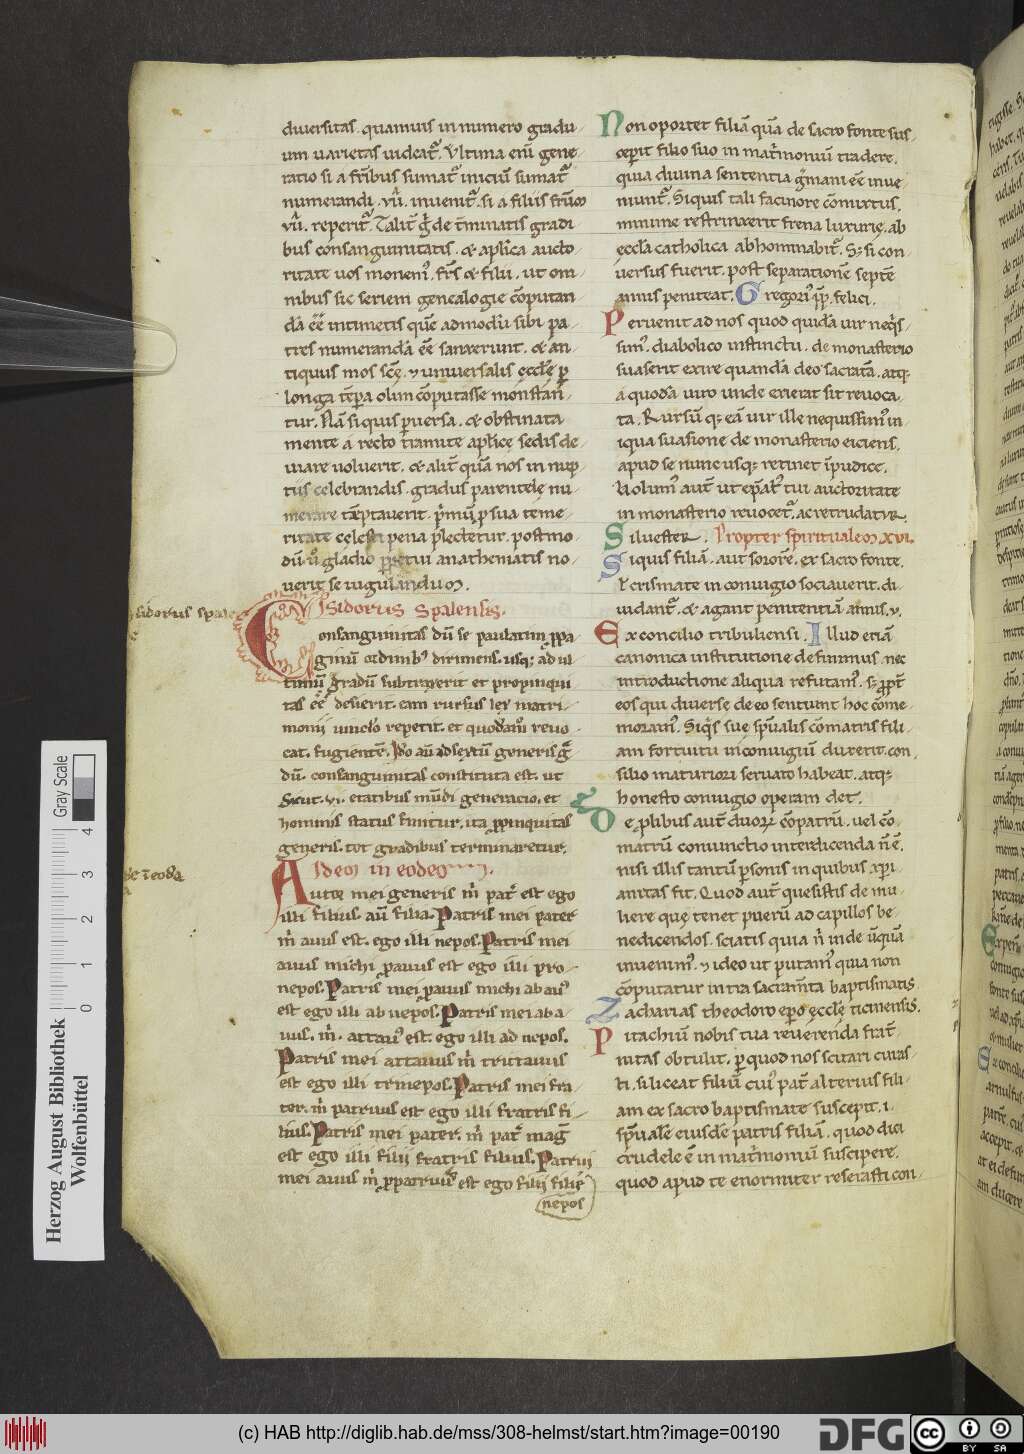 diuersitas. quamuis in numero gradu-
um uarietas uideat᷑. Vltima eni̅ gene-
ratio si a fr̅ibus sumat᷑ iniciu̅ sumat᷑
numerandi .vii. inuenit᷑. si a filiis fr̅um
vi. reperit᷑. Talit̅ g̊ de t̅minatis gradi-
bus consanguinitatis. & aplica aucto-
ritate uos monem᷒. fr̅s & filii. ut om-
nibus sic seriem genealogie co̅putan
da̅ e̅e̅ intimetis que̅ admodu̅ sibi pa-
tres numeranda̅ e̅e̅ sanxerunt. & an-
tiquus mos sc̅ę. ⁊ uniuersalis ęccl̅ę ꝑ
longa te̅ꝑa olim co̅putasse monst̅ant̅
tur. Na̅ si quis ꝑuersa. & obstinata
mente a recto tramite aplicę sedis de-
uiare uoluerit. & alit̅ qua̅ nos in nup-
tiis celebrandis. gradus parentelę nu-
merare te̅ptauerit. p̅mu̅ ꝑ sua teme-
ritate celesti pena plectetur. postmo-
du̅ u̅ gladio ꝑpetui anathematis no-
uerit se iugulandum.
Isidorus Spalensis.
Consanguinitas du̅ se paulatim ꝓpa-
ginu̅ ordinib᷒ dirimens. usq; ad ul
timu̅ gradu̅ subtraxerit et propinqui
tas e̅e̅ desierit. eam rursus lex matri-
monii uinclo̅ repetit. et quoda̅m̅ reuo-
cat. fugiente̅. Ido̅ au̅ ad sextu̅ generis g̅
du̅. consanguinitas constituta est. ut
Sicut .vi. etatibus mu̅di generatio. et
hominis status finitur. ita ꝓpinquitas
generis. tot gradibus terminaretur.
Idem in eodem.
Aucte mei generis m̊ pat̅ est ego
illi filius. au̅ filia. Patris mei pater
m̊ auus est. ego illi nepos. Patris mei
auus michi ꝓauus est ego illi pro-
nepos. Patris mei ꝓauus michi abau᷒
est ego illi ab nepos. Patris mei aba-
uus. m̊. attau᷒ est. ego illi ad nepos.
Patris mei attauus m̊ tritauus
est ego illi trinepos. Patris mei fra-
ter. m̊ patruus est ego illi fratris fi-
lius. Patris mei pater. m̊ pat̅ mag̅
est ego illi filii fratris filius. Patrui
mei auus m̊ ꝓpatruus est ego filii filii
nepos
isidorus spale
Non oportet filia̅ qua̅ de sacro fonte sus-
ceperit filio suo in mat̅moniu̅ tradere.
quia diuina sententia g̅mani e̅e inue-
niunt᷑. Siquis tali facinore co̅mixtus.
minime restrinxerit frena luxurię. ab
ęccl̅a catholica abhominabit᷑. S; si con-
uersus fuerit. post separatione̅ septe̅
annis peniteat. Gregori᷒ p̅p̅. felici.
Peruenit ad nos quod quida̅ uir neq̊s-
sim᷒. diabolico instinctu. de monasterio
suaserit exire quanda̅ deo sacrata̅. atq;
a quoda̅ uiro unde exierat sit reuoca-
ta. Rursu̅ q; ea̅ uir ille nequissim᷒ in-
iqua suasione de monasterio eiciens.
apud se nunc usq; retinet i̅pudice.
Volum᷒ aut̅ ut ep̅at᷒ tui auctoritate
in monasterio reuocet᷑. ac retrudatur.
Siluester. Propter spiritualem XVI.
Siquis filia̅. aut sorore̅. ex sacro fonte.
l̅ crismate in coniugio sociauerit. di-
uidant᷑. & agant penitentia̅ annis .v.
Ex concilio tribuliensi. Illud etia̅
canonica institutione definimus. nec
introductione aliqua refutam᷒. s; ꝓpt̅
eos qui diuerse de eo sentiunt hoc co̅me-
moram᷒. Siq̊s suę sp̅ualis co̅matris fili-
am fortuitu in coniugiu̅ duxerit. con-
silio maturiori seruato habeat. atq;
honesto coniugio operam det.
De ꝓlibus aut̅ duoꝝ co̅patru̅. uel co̅-
matru̅ coniunctio interdicenda n̅ e̅.
nisi illis tantu̅ ꝑsonis in quibus xp̅i-
anitas fit. Quod aut̅ quesistis de mu-
liere quę tenet pueru̅ ad capillos be-
nedicendos. sciatis quia n̅ inde u̅qua̅
inuenim᷒. ⁊ ideo ut putam᷒ quia non
co̅putatur intra sacram̅ta baptismatis
Zacharias theodoro ep̅o ęccl̅ę ticinensis.
Pitachiu̅ nobis tua reuerenda frat̅-
nitas obtulit. ꝑ quod nos scitari curas-
ti. si liceat filiu̅ cui᷒ pat̅ alterius fili-
am ex sacro baptismate suscepit. i.
sp̅uale̅ eiusde̅ patris filia̅. quod dici
crudele e̅ in mat̅moniu̅ suscipere.
quod apud te enormiter reserasti con
Herzog August Bibliothek
Wolfenbüttel
0 1 2 3 4
Gray Scale
(c) HAB http://diglib.hab.de/mss/308-helmst/start.htm?image=00190
DFG
cc BY SA